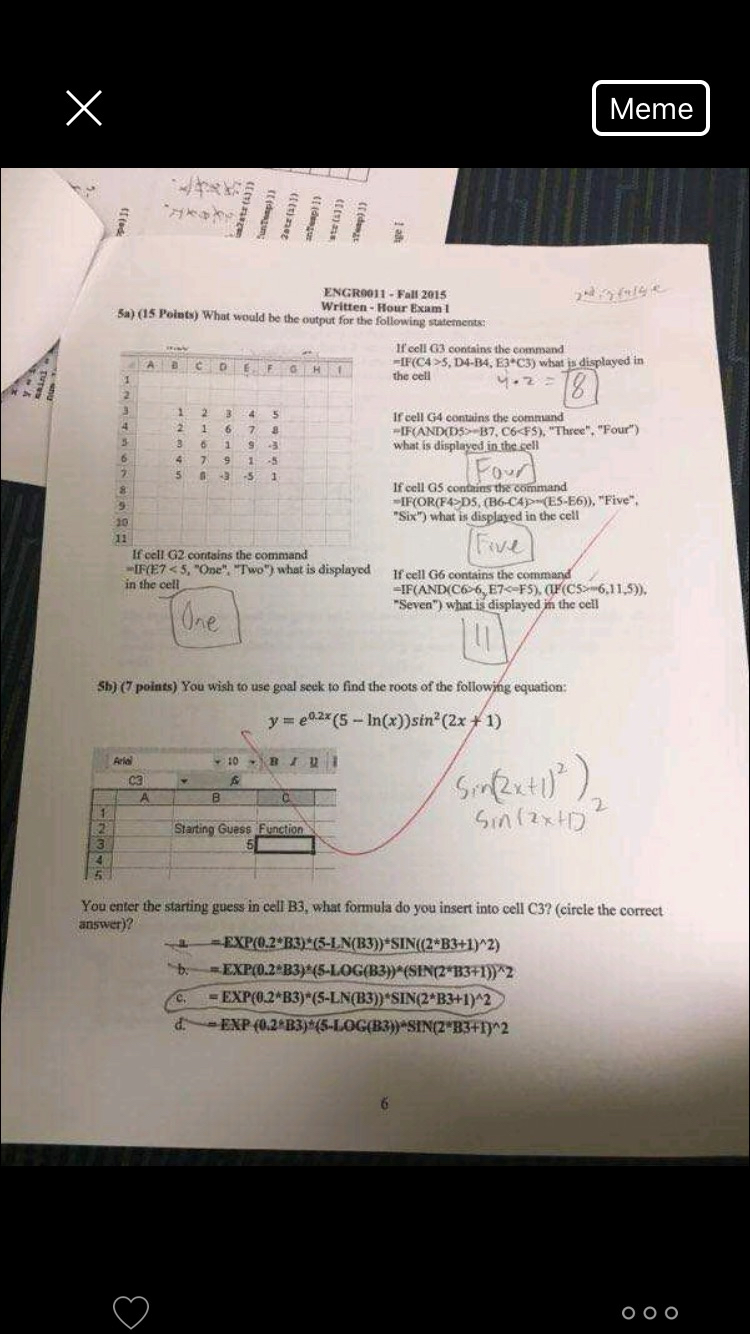 Meme
ENGR0011 - Fall 2015
Written - Hour Exam I
2nd is false
5a) (15 Points) What would be the output for the following statements:
A B C D E F G H I
1
2
3 1 2 3 4 5
4 2 1 6 7 8
5 3 6 1 9 -3
6 4 7 9 1 -5
7 5 8 -3 -5 1
8
9
10
11
If cell G2 contains the command
=IF(E7 < 5, "One", "Two") what is displayed
in the cell
One
If cell G3 contains the command
=IF(C4 >5, D4-B4, E3*C3) what is displayed in
the cell
4*2 = 8
If cell G4 contains the command
=IF(AND(D5>=B7, C6<F5), "Three", "Four")
what is displayed in the cell
Four
If cell G5 contains the command
=IF(OR(F4>D5, (B6-C4)>=(E5-E6)), "Five",
"Six") what is displayed in the cell
Five
If cell G6 contains the command
=IF(AND(C6>6, E7<=F5), (IF(C5>=6,11,5)),
"Seven") what is displayed in the cell
11
5b) (7 points) You wish to use goal seek to find the roots of the following equation:
y = e^0.2x(5 − ln(x))sin²(2x + 1)
Arial 10 B I U
C3 fx
A B C
1
2 Starting Guess Function
3 5
4
5
sin(2x+1)²)
sin(2x+1)²
You enter the starting guess in cell B3, what formula do you insert into cell C3? (circle the correct
answer)?
a. =EXP(0.2*B3)*(5-LN(B3))*SIN((2*B3+1)^2)
b. =EXP(0.2*B3)*(5-LOG(B3))*(SIN(2*B3+1))^2
c. =EXP(0.2*B3)*(5-LN(B3))*SIN(2*B3+1)^2
d. =EXP (0.2*B3)*(5-LOG(B3))*SIN(2*B3+1)^2
6